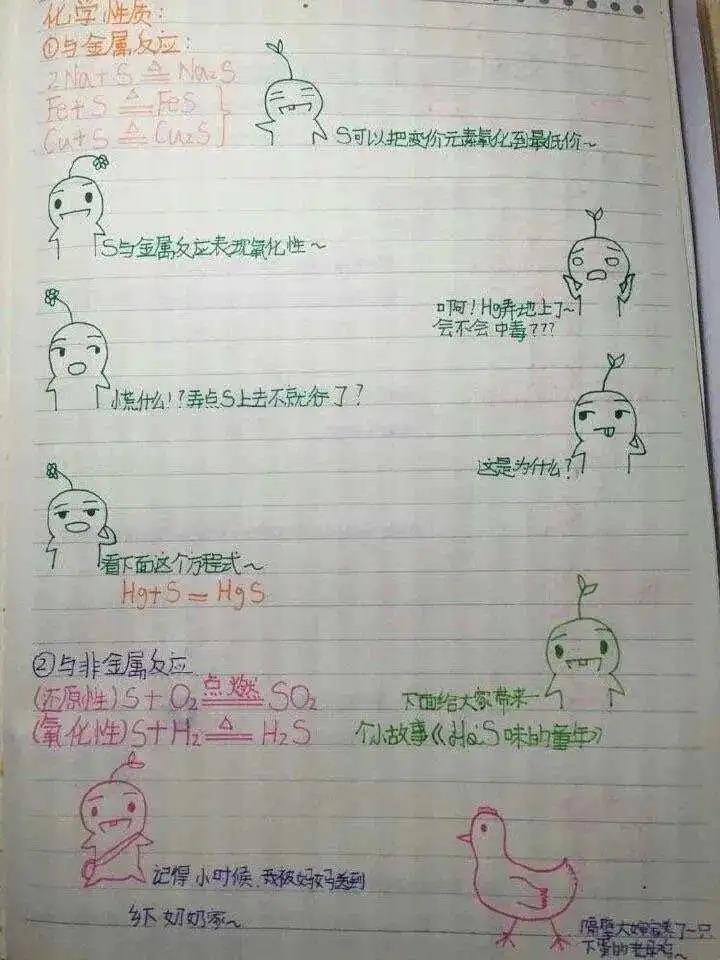 化学性质:
①与金属反应:
2Na+S ≜ Na2S
Fe+S ≜ FeS
Cu+S ≜ Cu2S
S可以把变价元素氧化到最低价~
S与金属反应表现氧化性~
啊!Hg弄地上了~
会不会中毒???
慌什么!?弄点S上去不就行了?
这是为什么?
看下面这个方程式~
Hg+S=HgS
②与非金属反应
(还原性)S+O2 点燃 SO2
(氧化性)S+H2 ≜ H2S
下面给大家带来一
个小故事《H2S味的童年》
记得小时候,我被妈妈送到
乡下奶奶家~
隔壁大婶家养了一只
下蛋的老母鸡~